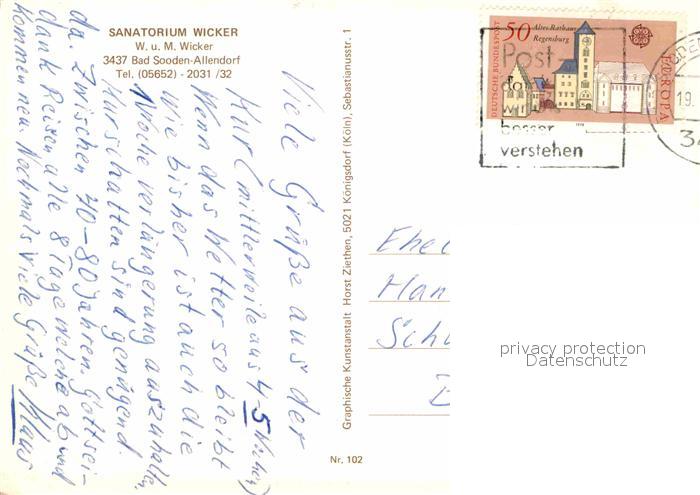 SANATORIUM WICKER
W. u. M. Wicker
3437 Bad Sooden-Allendorf
Tel. (05652) - 2031 /32
Viele Grüße aus der
Kur (mittlerweile aus 4 5 Wochen)
Wenn das Wetter so bleibt
wie bisher ist auch die
Woche Verlängerung auszuhalten,
Kurschatten sind genügend
da. Zwischen 70-80 Jahren. Gottsei-
dank Reisen alle 8 Tage welche ab und
kommen neu. Nochmals viele Grüße Klaus
Graphische Kunstanstalt Horst Ziethen, 5021 Königsdorf (Köln), Sebastianusstr. 1
Nr. 102
DEUTSCHE BUNDESPOST
50
Altes Rathaus
Regensburg
EUROPA
1978
Post
besser
verstehen
19.
34
Ehe
Han
Sch
privacy protection
Datenschutz